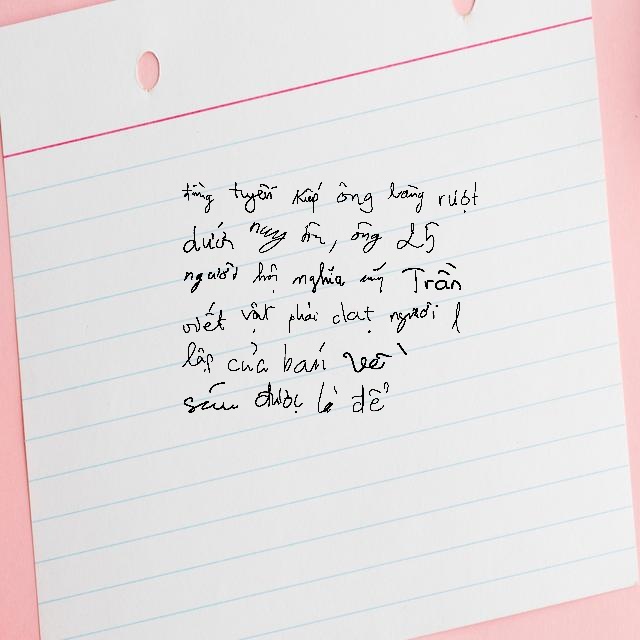 từng tuyến kiếp ông bằng ruột
dưới nay ông 25
người hội nghĩa Trần
viết vật phải đạt người l
lập của bán về
sáu được là để